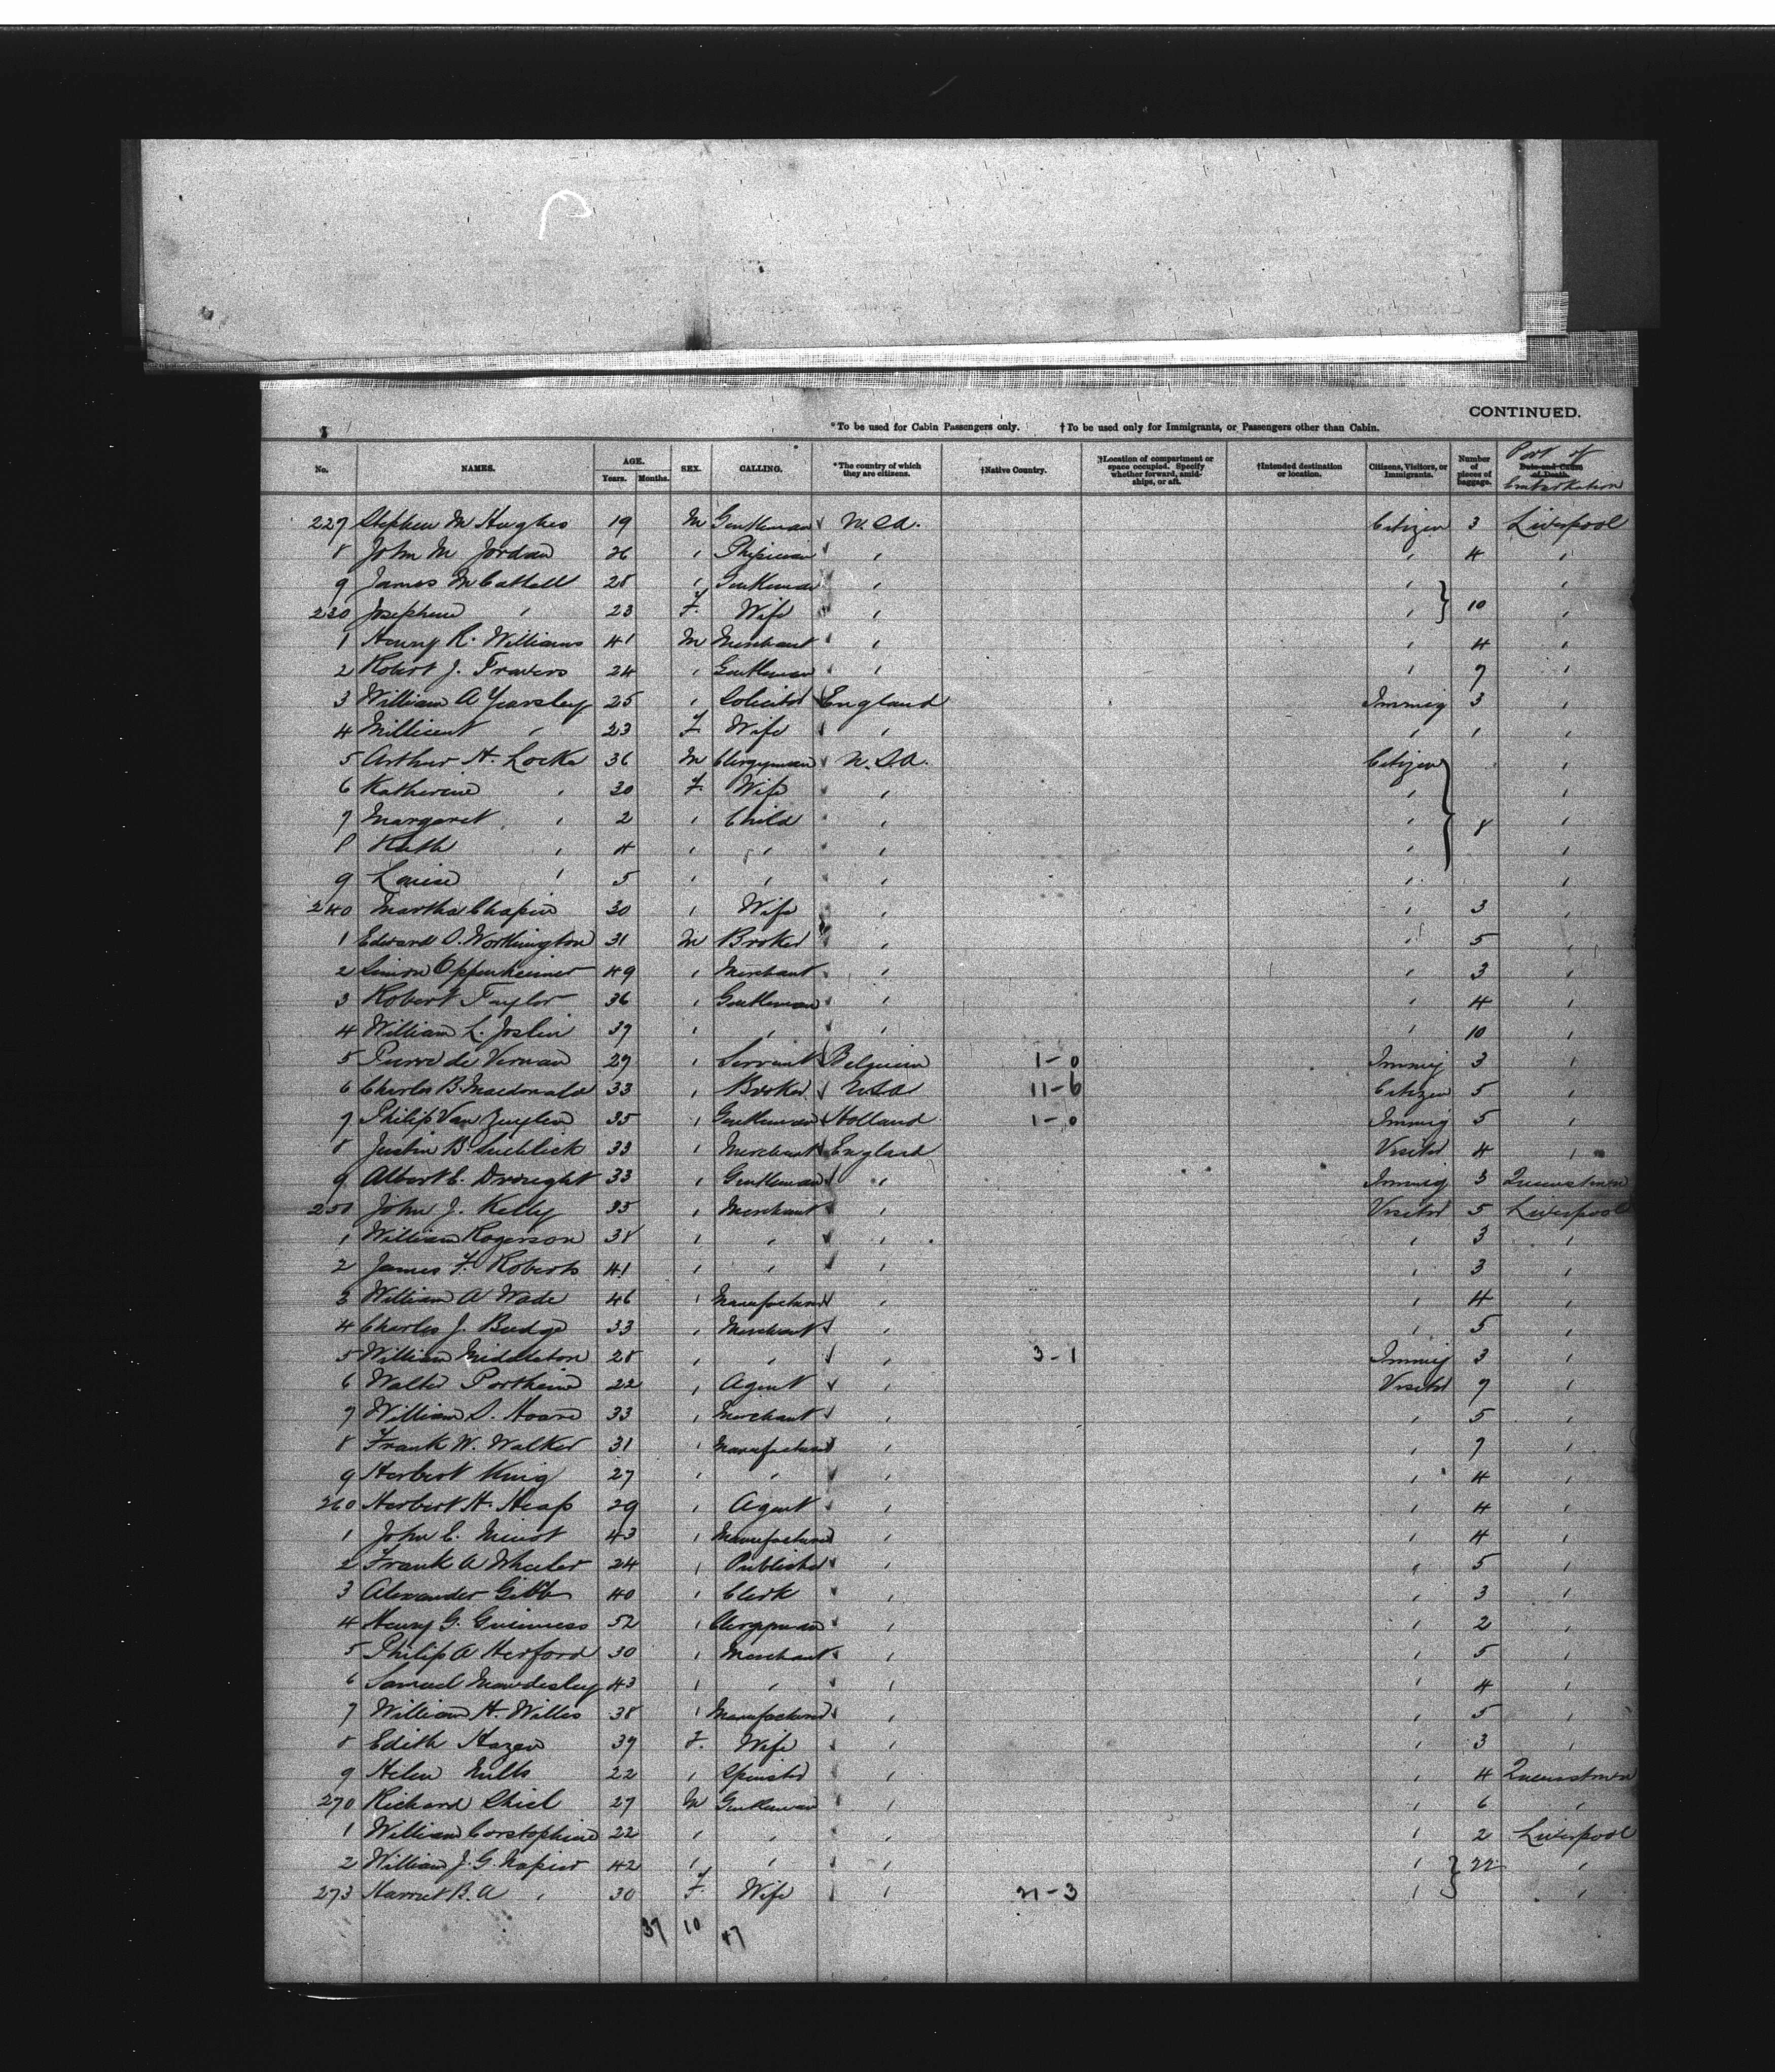 CONTINUED.
*To be used for Cabin Passengers only. †To be used only for Immigrants, or Passengers other than Cabin.
No. NAMES. AGE. Years. Months. SEX. CALLING. *The country of which they are citizens. †Native Country. †Location of compartment or space occupied. Specify whether forward, amidships, or aft. †Intended destination or location. Citizens, Visitors, or Immigrants. Number of pieces of baggage. Date and Cause of Death. Port of Embarkation
227 Stephen M Hughes 19 M Gentleman U.S.A. Citizen 3 Liverpool
8 John M Jordan 26 " Physician " " 4 "
9 James McCattell 28 " Gentleman " " "
230 Josephine " 23 F. Wife " " 10 "
1 Henry R. Williams 41 M Merchant " " 4 "
2 Robert J. Travers 24 " Gentleman " " 7 "
3 William A Yearsley 25 " Solicitor England Immig 3 "
4 Millicent " 23 F Wife " " 1 "
5 Arthur H. Locke 36 M Clergyman U.S.A. Citizen "
6 Katherine " 30 F. Wife " " "
7 Margaret " 2 " Child " " 8 "
8 Ruth " 4 " " " " "
9 Louise " 5 " " " " "
240 Martha Chapin 30 " Wife " " 3 "
1 Edward O. Worthington 31 M Broker " " 5 "
2 Simon Oppenheimer 49 " Merchant " " 3 "
3 Robert Taylor 36 " Gentleman " " 4 "
4 William L. Joslin 39 " " " " 10 "
5 Pierre de Vernan 29 " Servant Belgium 1-0 Immig 3 "
6 Charles B. Macdonald 33 Broker USA 11-6 Citizen 5 "
7 Philip Van Zuylen 35 " Gentleman Holland 1-0 Immig 5 "
8 Justin B. 33 " Merchant England Visitor 4 "
9 Albert E. Drought 33 " Gentleman " Immig 3 Queenstown
250 John J. Kelly 35 " Merchant " Visitor 5 Liverpool
1 William Rogerson 38 " " " " 3 "
2 James F. Roberts 41 " " " " 3 "
3 William A Wade 46 " Manufacturer " " 4 "
4 Charles J. Budge 33 " Merchant " " 5 "
5 William Middleton 28 " " " 3-1 Immig 3 "
6 Walter Portheim 22 " Agent " Visitor 7 "
7 William S. Hoare 33 " Merchant " " 5 "
8 Frank W. Walker 31 " Manufacturer " " 7 "
9 Herbert King 27 " " " " 4 "
260 Herbert H. Heap 29 " Agent " " 4 "
1 John E. Minot 43 " Manufacturer " " 4 "
2 Frank A Wheeler 24 " Publisher " " 5 "
3 Alexander Gibb 40 " Clerk " " 3 "
4 Henry G. Guinness 52 " Clergyman " " 2 "
5 Philip A Herford 30 " Merchant " " 5 "
6 Samuel Mawdesley 43 " " " " 4 "
7 William H. Willis 38 " Manufacturer " " 5 "
8 Edith Hazen 39 F. Wife " " 3 "
9 Helen Mills 22 " Spinster " " 4 Queenstown
270 Richard Shiel 27 M Gentleman " " 6 "
1 William Corstophine 22 " " " " 2 Liverpool
2 William J. G. Napier 42 " " " " 22 "
273 Harriet B. A " 30 F. Wife " 21-3 " "
37 10 47